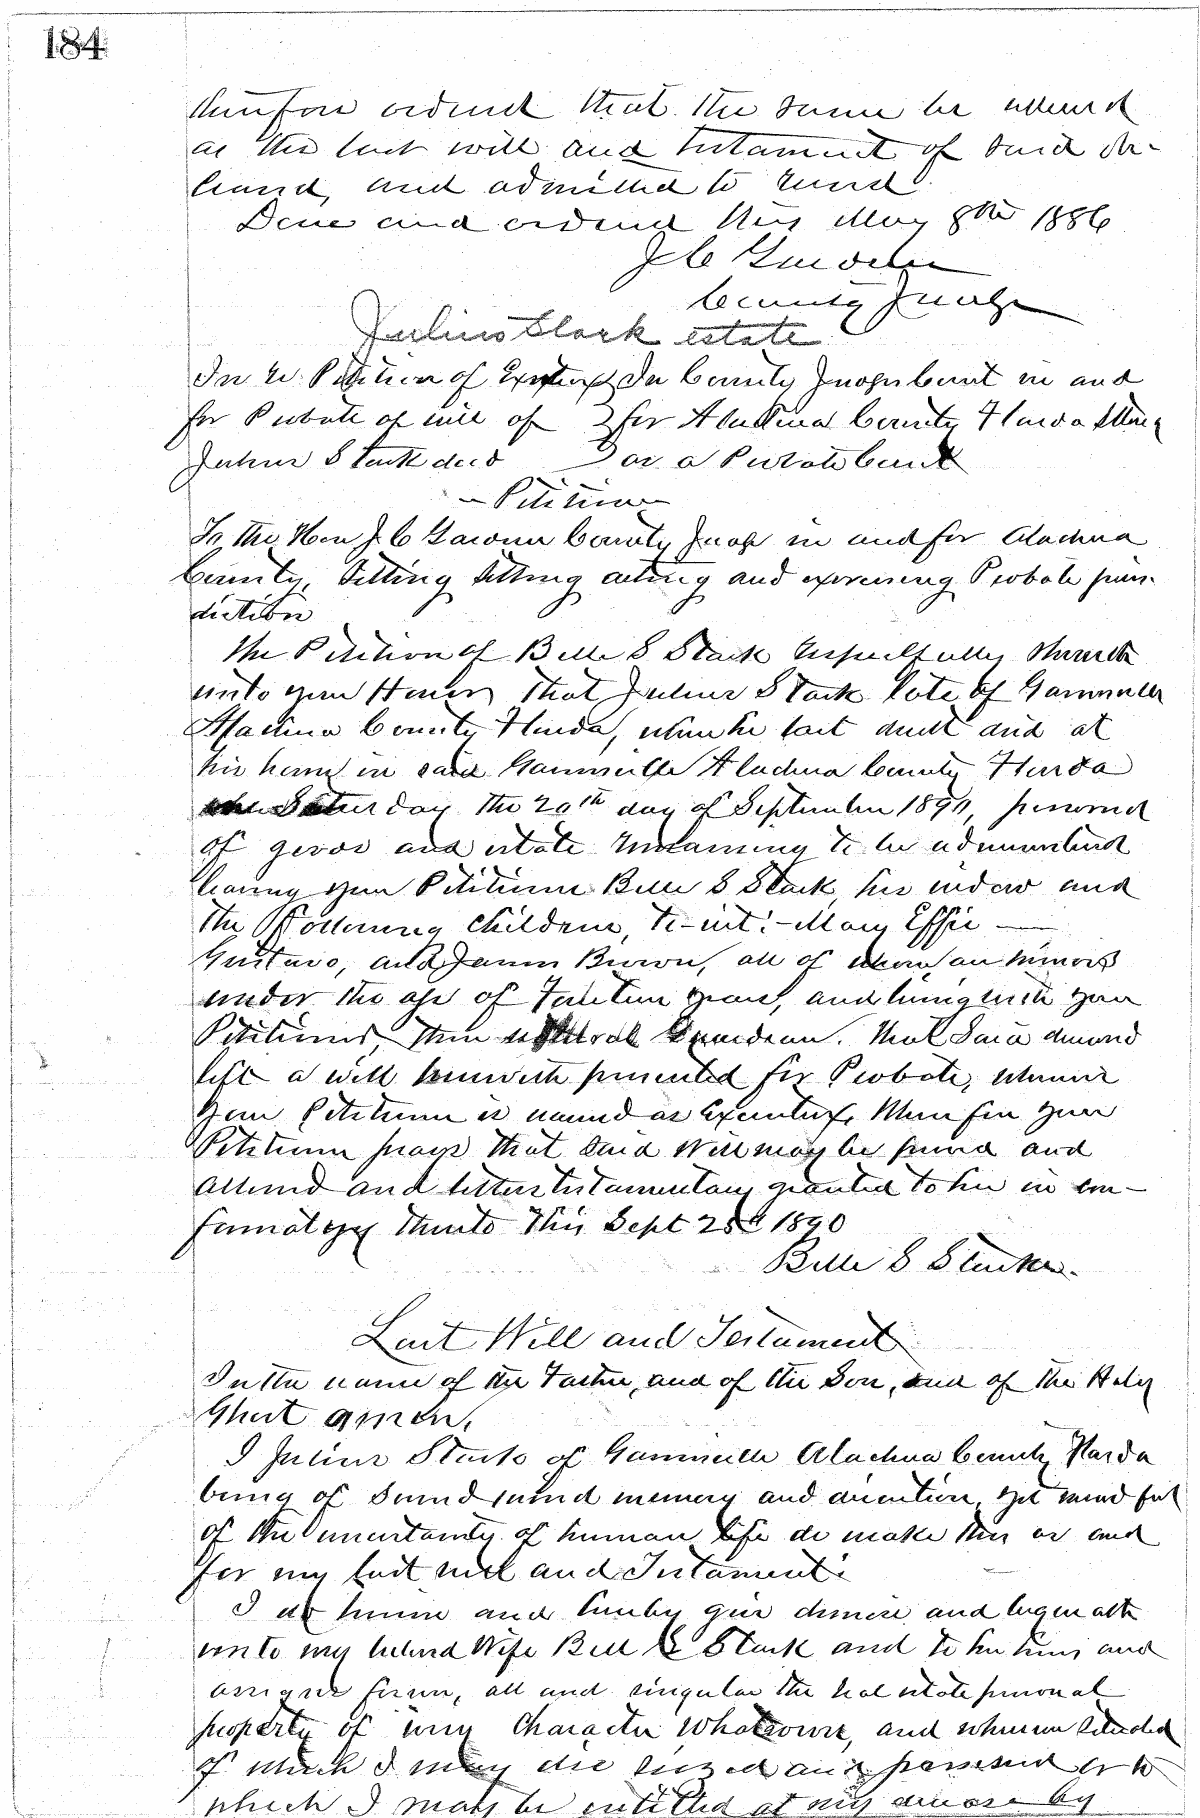 184
therefore ordered that the same be allowed
as the last will and testament of said de-
ceased, and admitted to record.
Done and ordered this May 8th 1886
J C Gardner
County Judge
Julius Stark estate
In re Petition of Executrix In County Judges Court in and
for Probate of will of for Alachua County Florida sitting
Julius Stark decd as a Probate Court
- Petition -
To the Hon J. C Gardner County Judge in and for Alachua
County, Sitting sitting acting and exercising Probate juris-
diction
The Petition of Belle S Stark respectfully sheweth
unto your Honor, that Julius Stark late of Gainesville
Alachua County Florida, when he last dwelt died at
his home in said Gainesville Alachua County Florida
Saturday the 20th day of September 1890, possessed
of goods and estate remaining to be administered
leaving your Petitioner Belle S Stark, his widow and
the following children, to-wit:- Mary Effie
Gustavo, and James Brown, all of whom are minors
under the age of fourteen years, and living with your
Petitioner, their natural guardian. That said deceased
left a will herewith presented for Probate, wherein
your Petitioner is named as Executrix, Wherefore your
Petitioner prays that said Will may be proved and
allowed and letters testamentary granted to her in con-
formity thereto This Sept 23d 1890
Belle S Stark.
Last Will and Testament
In the name of the Father, and of the Son, and of the Holy
Ghost amen.
I Julius Stark of Gainesville Alachua County Florida
being of sound mind memory and discretion, yet mindful
of the uncertainty of human life do make this as and
for my last will and Testament:
I do herein and hereby give demise and bequeath
unto my beloved Wife Bell S Stark and to her heirs and
assigns forever, all and singular the real estate personal
property of every Character whatsoever, and wherever situated
of which I may die seized and possessed or to
which I may be entitled at my decease by